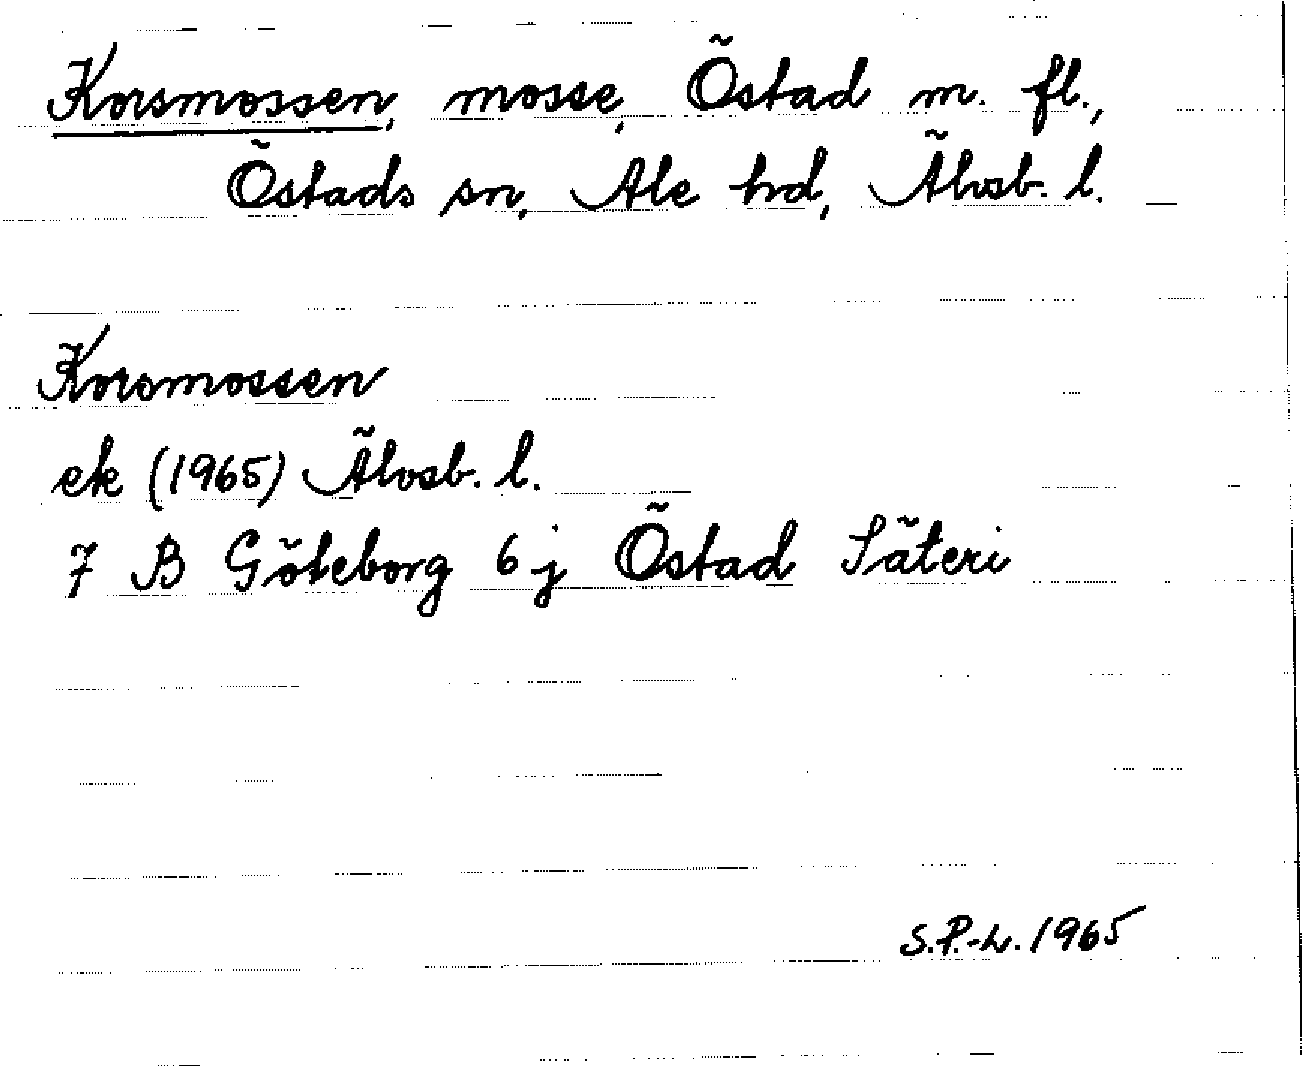 Korsmossen, mosse, Östad m. fl.,
Östads sn, Ale hd, Älvsb. l.
Korsmossen
ek (1965) Älvsb. l.
7 B Göteborg 6 j Östad Säteri
S.P.-L. 1965